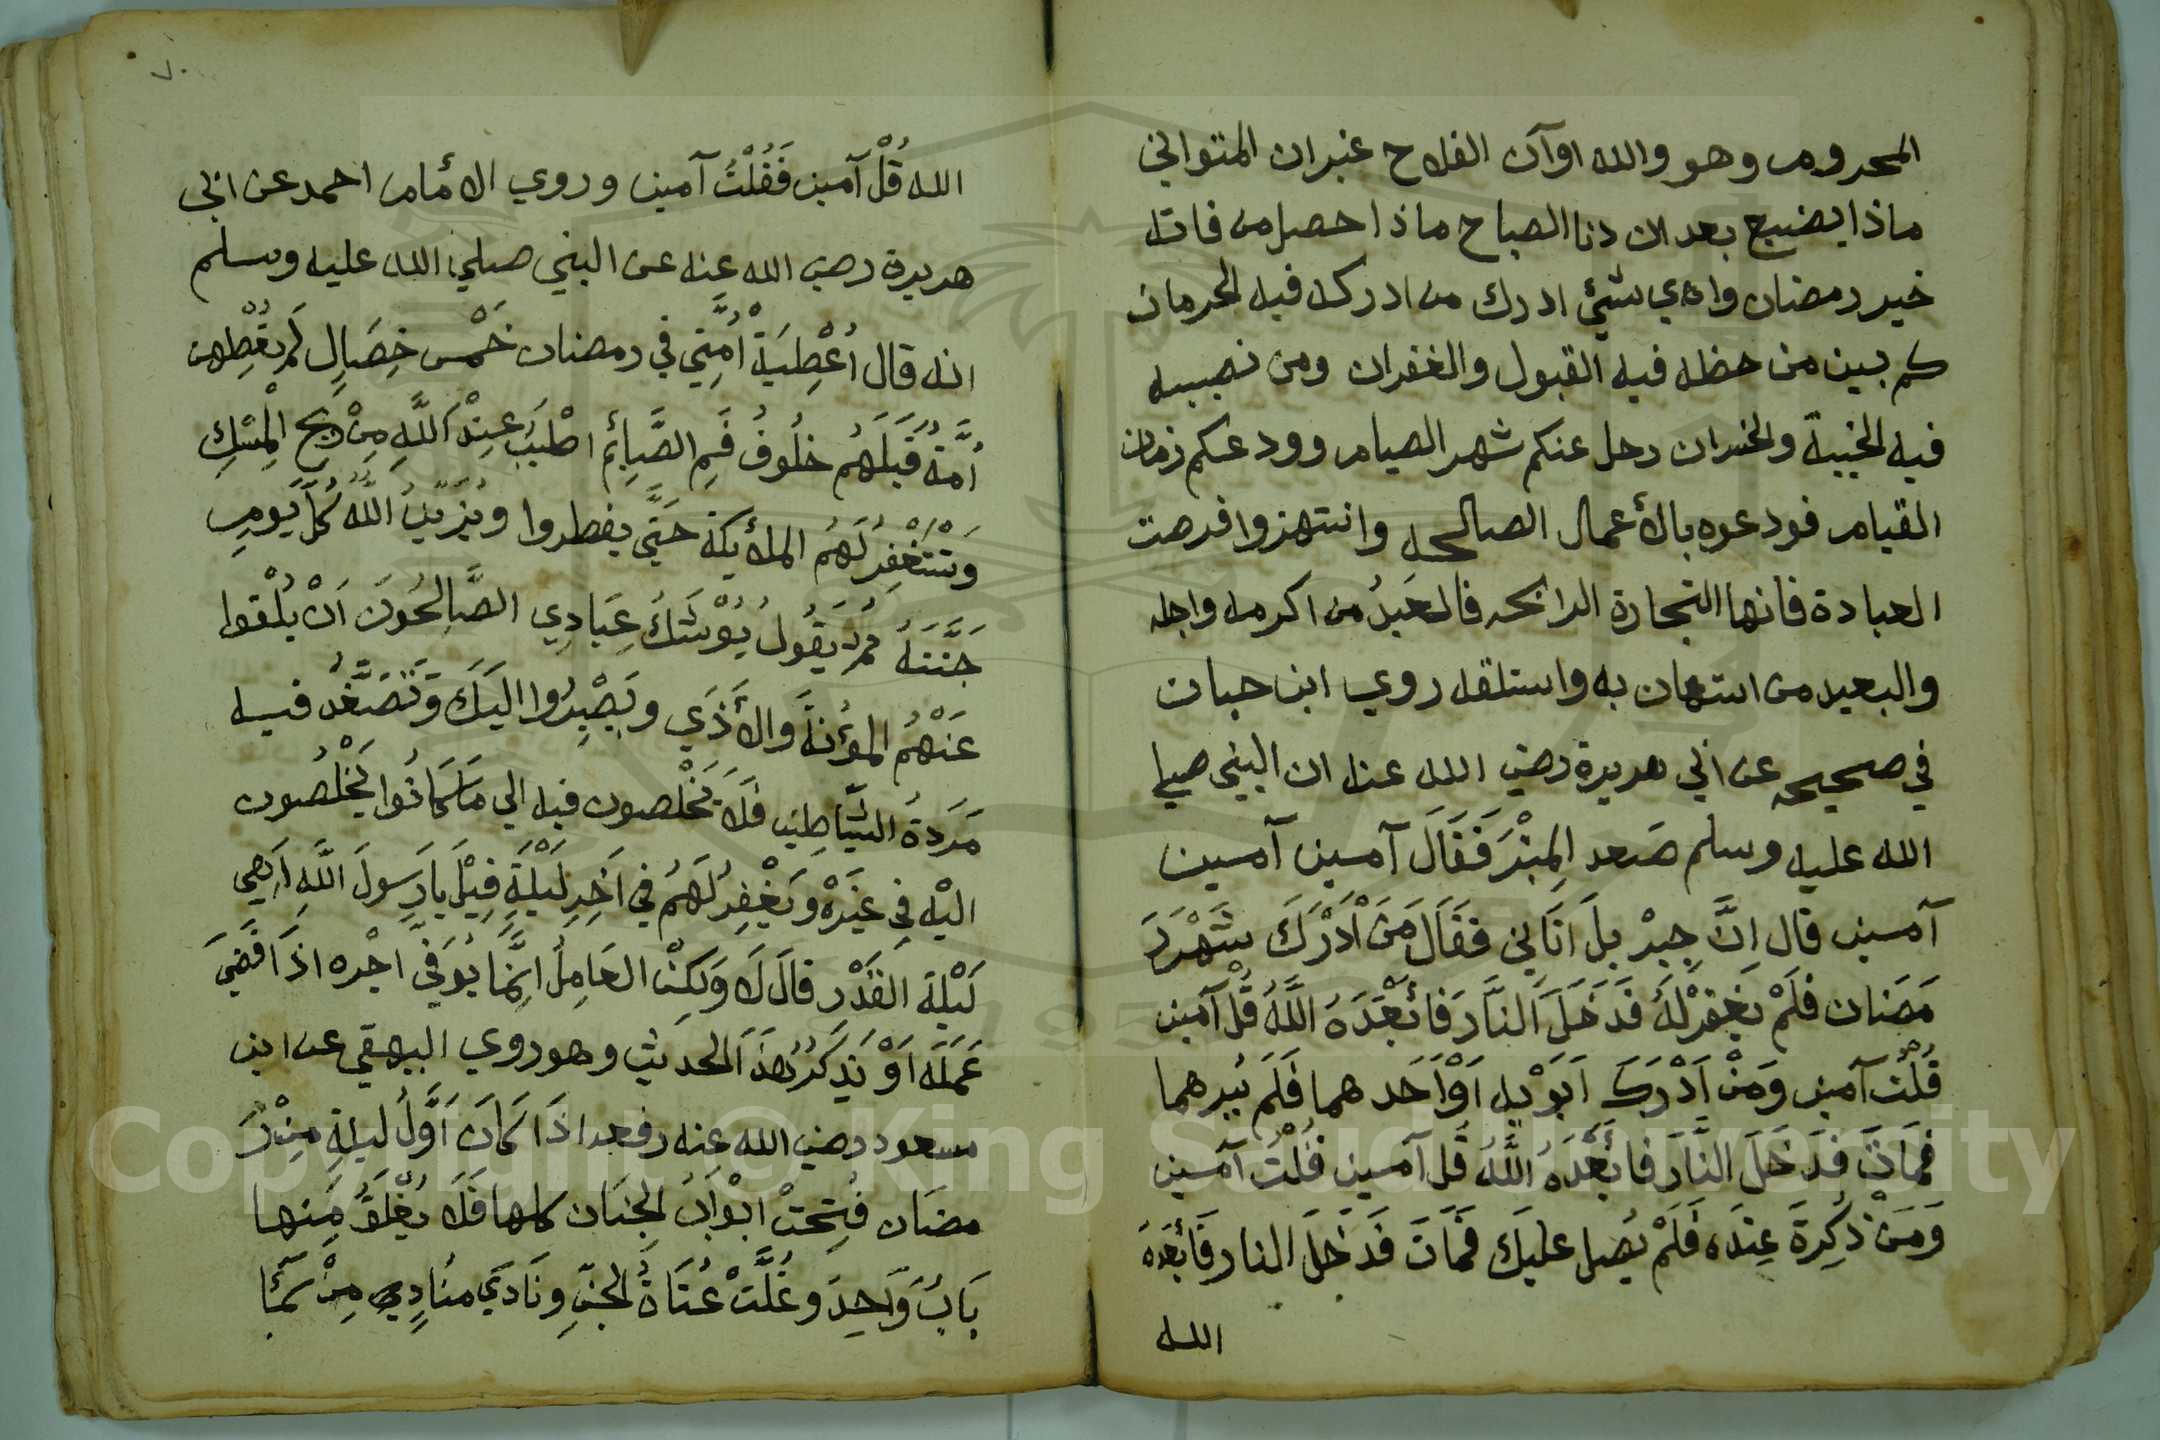 المحروم وهو والله اوآن الفلاح غبران المتواني
ماذا يضيع بعد ان دنا الصباح ماذا حصل من فاته
خير رمضان واي شئ ادرك من ادركه فيه الحرمان
كم بين من حظه فيه القبول والغفران ومن نصيبه
فيه الخيبة والخسران رحل عنكم شهر الصيام وودعكم زمان
القيام فودعوه بالأعمال الصالحه وانتهزوا فرصت
العبادة فانها التجارة الرابحه فالعَبدُ من اكرمه واجله
والبعيد من استهان به واستلقه روي ابن حبان
في صحيحه عن ابي هريرة رضي الله عنه ان النبي صلي
الله عليه وسلم صَعد المِنْبَرَ فَقَالَ آمين آمين
آمين قال اِنَّ جِبْريلَ اتَانِي فَقَالَ مَنْ اَدْرَكَ شَهْرَ رَ
مَضَنان فلَمْ يَغفِرْ لَهُ فَدَخَلَ النَّارَ فَأبْعَدَهُ اللَّهُ قُلْ آمين
قُلْتُ آمين وَمَنْ اَدْرَكَ اَبَوَيْهِ اَوْ اَحَدهما فَلَم يَبرهما
فَمَاتَ فَدَخَلَ النَّارَ فابْعَدَهُ اللَّهُ قُل آمين قُلْتُ آمين
وَمَنْ ذُكِرةَ عِندَه فَلَمْ يُصلِ عليكَ فَمَاتَ فَدَخَلَ النار فَأبْعَدَهُ
الله
٧٠
الله قُلْ آمين فَقُلْتُ آمين وروي الأمام احمد عن ابي
هريرة رضي الله عنه عن النبي صلي الله عليه وسلم
انه قال اُعْطِيَةْ اُمَّتِي في رمضنان خَمْس خِصَالٍ لَم تُعْطِهن
اُمَّةُ قَبلَهُم خلُوفُ فَمِ الصَّائِمِ اطْيَبُ عِنْدَ اللَّهِ مِنْ رِيحِ الْمِسْكِ
وَتَسْتَغْفِرُ لَهُم الملأيكة حَتَّي يفطروا ويُزَيِّنُ اللَّهُ كُلَّ يَومٍ
جَنَّتَهُ ثُمَّ يَقُولُ يُوْشَكُ عِبَادِي الصَّالِحُونَ اَنْ يُلْقوا
عَنْهُمُ المؤُنَةَ والأذَي ويَصِيرُوا اليَكَ وَتَصَفَّدُ فيه
مَرَدةُ الشَّيَاطِين فَلَا يَخْلصون فيه الي مَا كَانُوا يَخْلُصون
اليْه فِي غَيْرِهْ وَيَغْفِرُ لَهُم في اَخِرِ لَيْلَةٍ قِيْلَ يا رَسولَ اللَّهِ اَهِي
لَيْلة القَدْر قالَ لَا وَلَكِنْ العَامِلُ اِنَّمَا يُوَفّي اجْره اذَا قَضَي
عَمَلَه اَوْ نَذكُرُ هَذَ الحديث وهو روي البيهقي عن ابن
مسعود رضي الله عنه رفعه اذَا كَانَ اَوَّلُ ليلةٍ مِنْ رَ
مضَان فُتِحَتْ ابْوَابُ الجنَان كلها فَلَا يُغْلَقُ مِنها
بَابُ وَاحِدَ وغُلَّتْ عُتَاةُ الجنِّ ونَادَي مُنَادِي مِنْ سَمَا
Copyright © King Saud University
1957